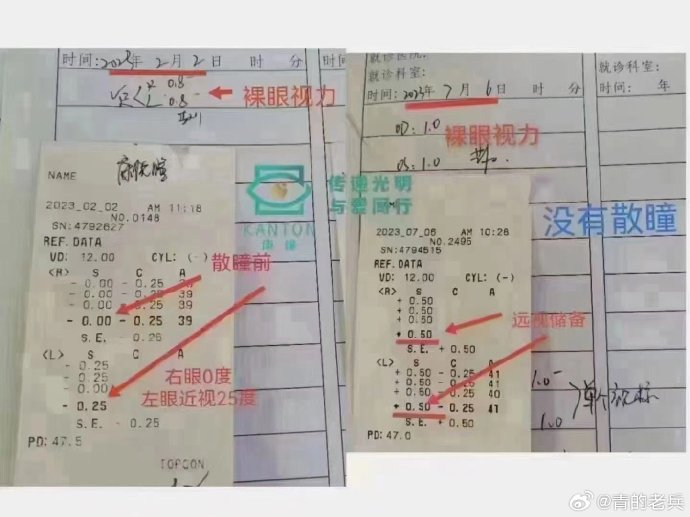 时间:2023年 2月 2日 时 分
0.8
0.8
裸眼视力
NAME
2023_02_02 AM 11:18
NO.0148
SN:4792627
REF.DATA
VD: 12.00 CYL: (-)
<R> S C A
- 0.00 - 0.25 39
- 0.00 - 0.25 39
- 0.00 - 0.25 39
- 0.00 - 0.25 39
S.E. - 0.25
散瞳前
<L> S C A
- 0.25
- 0.25
- 0.00
- 0.25
S.E. - 0.25
右眼0度
左眼近视25度
PD: 47.5
TOPCON
传递光明
与爱同行
KANTON
就诊科室:
时间:2023年 7月 6日 时 分
OD: 1.0
OS: 1.0
裸眼视力
2023_07_06 AM 10:28
NO.2495
SN:4794515
REF.DATA
VD: 12.00 CYL: (-)
<R> S C A
+ 0.50
+ 0.50
+ 0.50
+ 0.50
S.E. + 0.50
远视储备
<L> S C A
+ 0.50 - 0.25 41
+ 0.50 - 0.25 41
+ 0.50 - 0.25 40
+ 0.50 - 0.25 41
S.E. + 0.50
PD: 47.0
就诊科室:
时间: 年
没有散瞳
1.0
1.0
@青的老兵